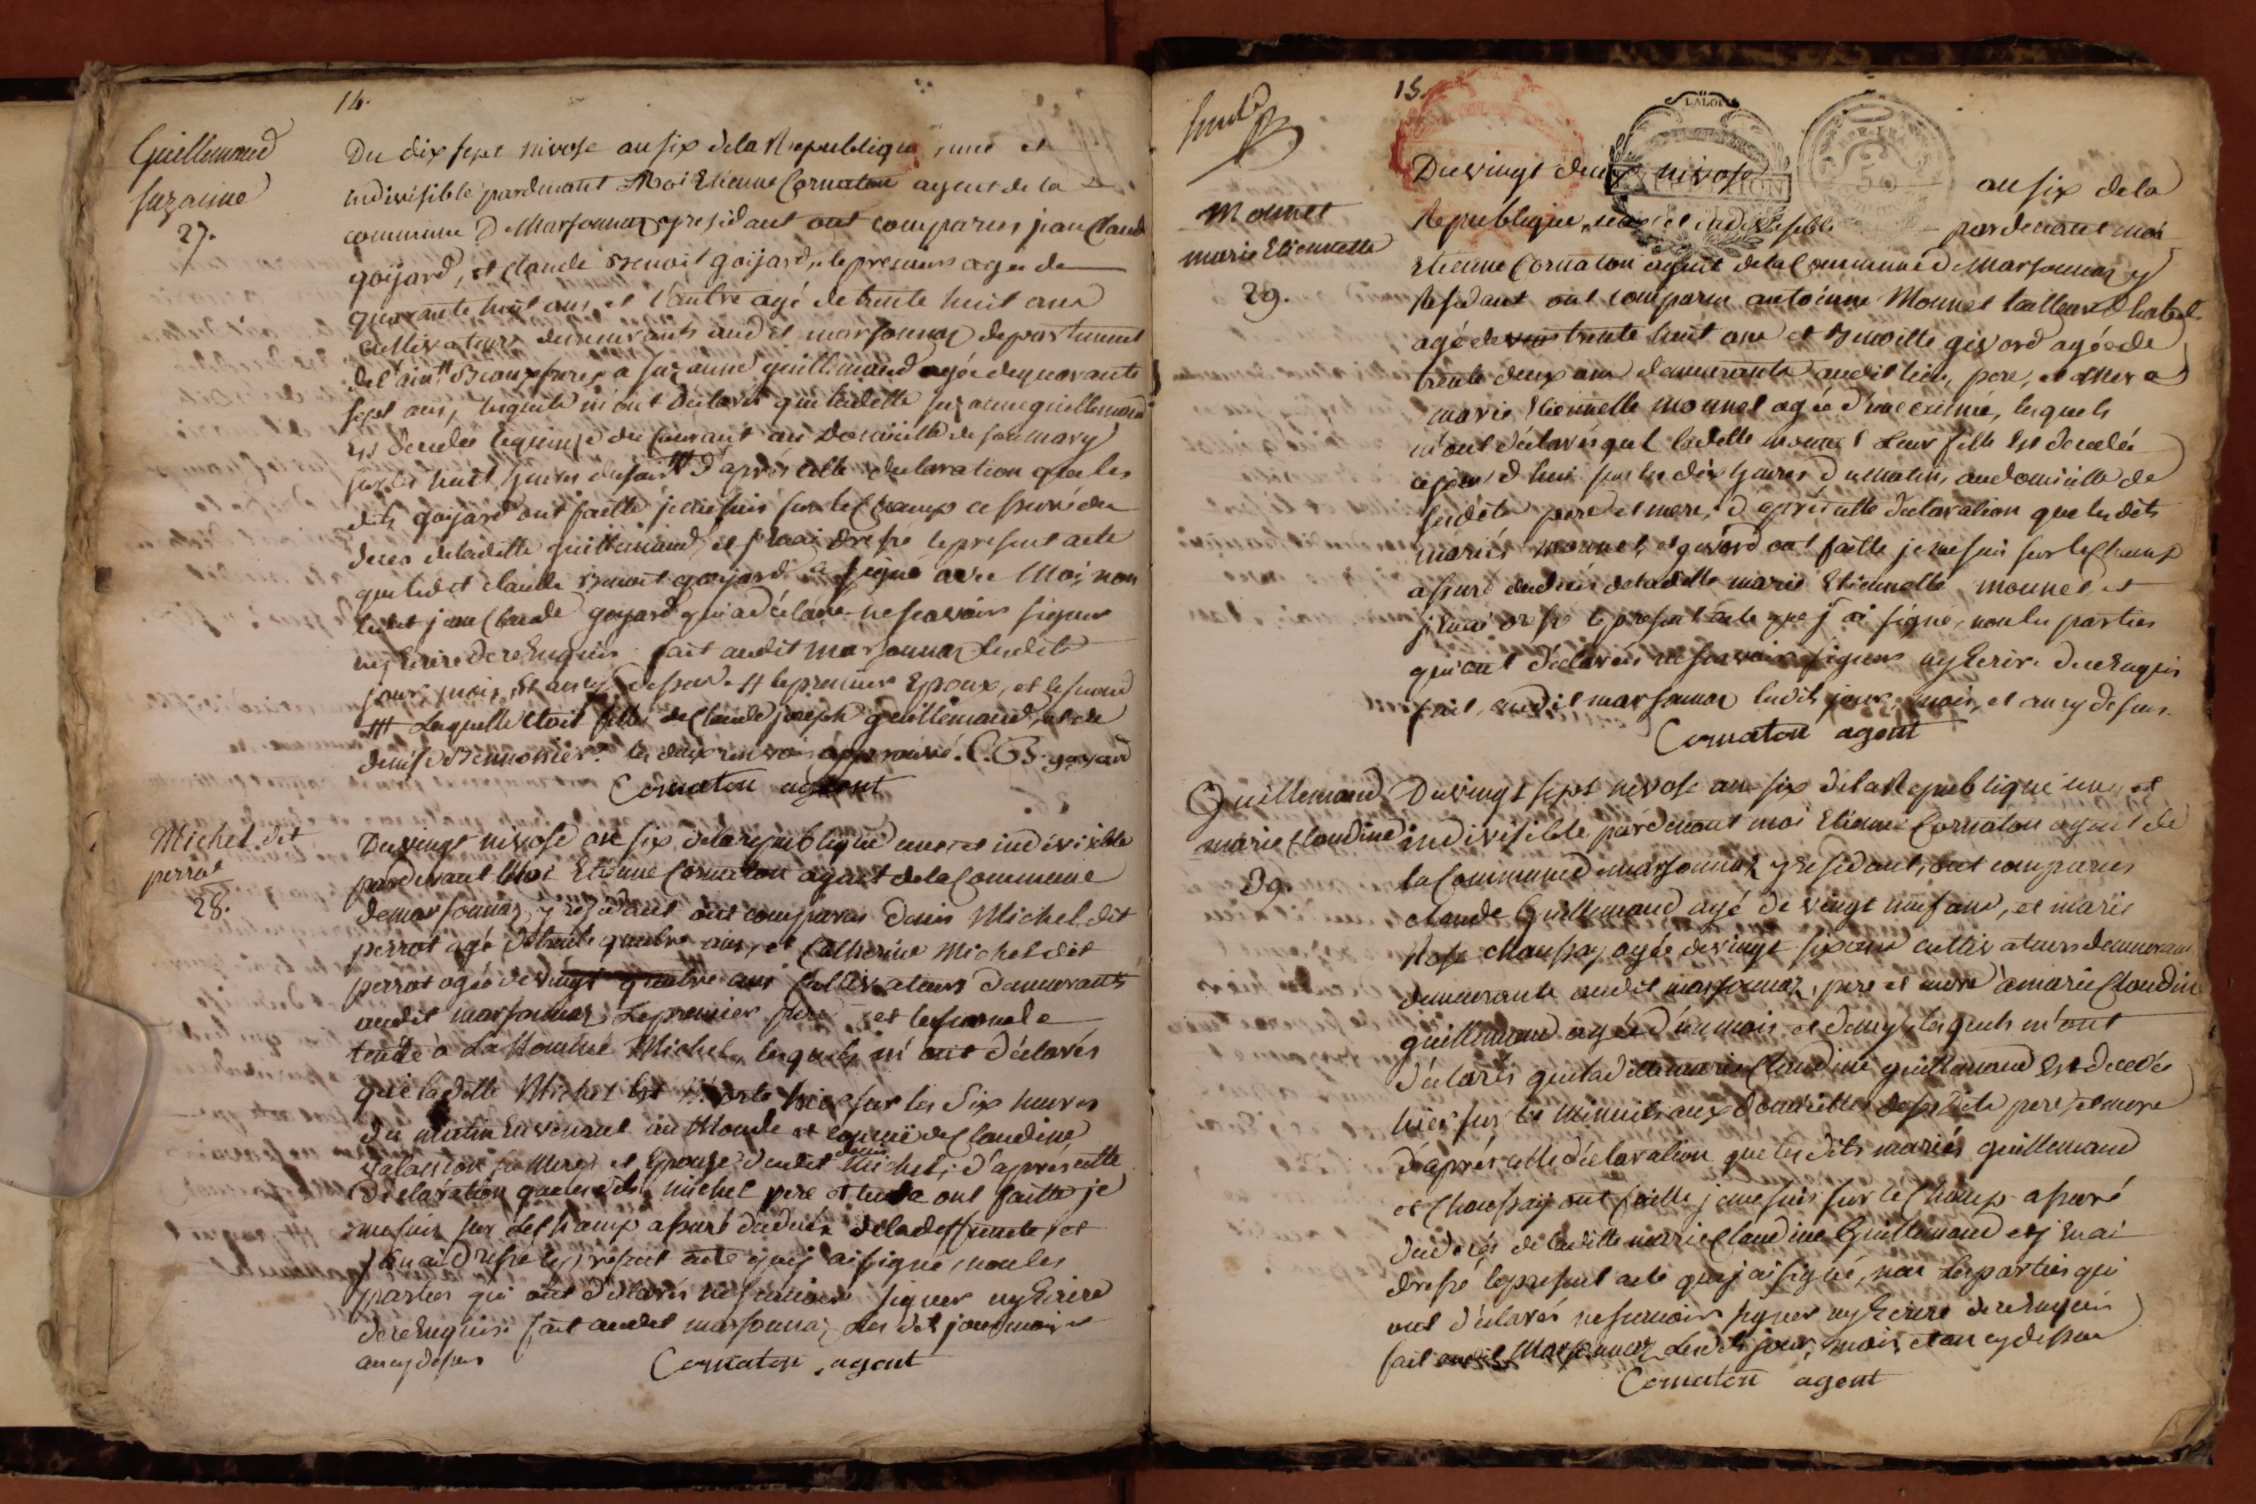 14.
Guillemaud
Suzanne
27.
Du dix sept nivose an six de la Republique, une et
indivisible pardevant Moi Etienne Cornaton agent de la
commune De Marsonnaz y residant ont comparus jean Claude
goijard, et Claude Benoit goijard, le premier agée de
quarante huit ans et l'autre agé de trente huit ans
cultivateurs demeurants aud.t marsonnaz departement
de l'ain a suzanne guillemaud agée de quarante
sept ans, lesquels m'ont declarés que ladette suzanne guillemaud
est decedée le quinze du courant au Domicille de son mary
sur les huit heures du soir # d'après cette declaration que les
dits goijard ont faitte je me suis sur le Champ assurré du
deces de ladette guillemaud, et j'en ai dressé le present acte
que ledit claude Benoit goijard a signé avec Moi, non
ledit jean Claude goijard qui a déclaré ne scavoir signer
ny Ecrire de ce Enquis. fait audit marsonnaz lesdits
jour, mois, et an cy dessus. # le premier Epoux, et le second
## Laquelle Etoit fille de Claude joseph guillemaud, et de
denise les deux renvois approuvé. C. B. goyard
Cornaton agent
Michel dit
perrot
28.
Du vingt nivose an six de la republique une et indivisible
pardevant Moi Etienne Cornaton agent de la Commune
de marsonnaz y residant ont comparus Denis Michel dit
perrot agé de trente quatre ans, et Catherine Michel dit
perrot agée de vingt quatre ans Cultivateurs demeurants
audit marsonnaz Le premier pere et la seconde
tente à La Nommée Michel, lesquels m'ont déclarés
que ladette Michel Est Morte hier sur les Six heures
Du matin En venant au Monde et de Claudine
sa Mere et Epouse dudit denis Michel; d'après cette
declaration que lesdits michel pere et tente ont faitte je
me suis sur le Champ assuré du decès de la deffunte, et
j'en ai dressé le present acte que j'ai signé, non les
parties qui ont déclarés ne scavoir signer ny Ecrire
de ce Enquis. fait audit marsonnaz Les dit jour mois et
an cy dessus
Cornaton agent
15.
LA LOI
50
Mounet
marie Etiennette
29.
Du vingt deux nivose an six de la
Republique, une et indivisible pardevant moi
Etienne Cornaton agent de la Commune de Marsonnaz y
Residant ont comparu antoinne Mounet tailleur d'habit
agé de trente huit ans et Benoitte givord agée de
trente deux ans demeurants audit lieu, pere, et Mere a
marie Etiennette mounet agée d'une année, lesquels
m'ont déclarés que ladette mounet Leur fille Est decedée
ce jour d'hui sur les dix heures du matin, au domicille de
sesdits pere et mere, d'après cette declaration que lesdits
mariés mounet, et givord ont faitte je me suis sur le Champ
assuré du decès de ladette marie Etiennette mounet et
j'en ai dressé le present acte que j'ai signé, non les parties
qui ont déclarés ne scavoir signer ny Ecrire de ce Enquis
fait audit marsonnaz lesdits jour, mois, et an cy dessus.
Cornaton agent
Guillemaud
marie Claudine
39.
Du vingt sept nivose an six de la Republique une et
indivisible pardevant moi Etienne Cornaton agent de
la Commune de marsonnaz y residant, ont comparus
claude Guillemaud agé de vingt neuf ans, et marie
Rose chaussay agée de vingt six ans cultivateurs demeurans
demeurants audit marsonnaz, pere et mere à marie Claudine
guillemaud agée d'un mois et demy, lesquels m'ont
déclarés que ladette marie Claudine guillemaud Est decedée
hier sur les Minuits aux domicilles desesdits pere et mere
d'après cette déclaration que lesdits mariés guillemaud
et Chaussay ont faitte je me suis sur le Champ assuré
du decés de ladette marie Claudine Guillemaud et j'en ai
dressé le present acte que j'ai signé, non Les parties qui
ont déclarés ne scavoir signer ny Ecrire de ce Enquis
fait audit Marsonnaz Lesdits jour, mois, et an cy dessus
Cornaton agent